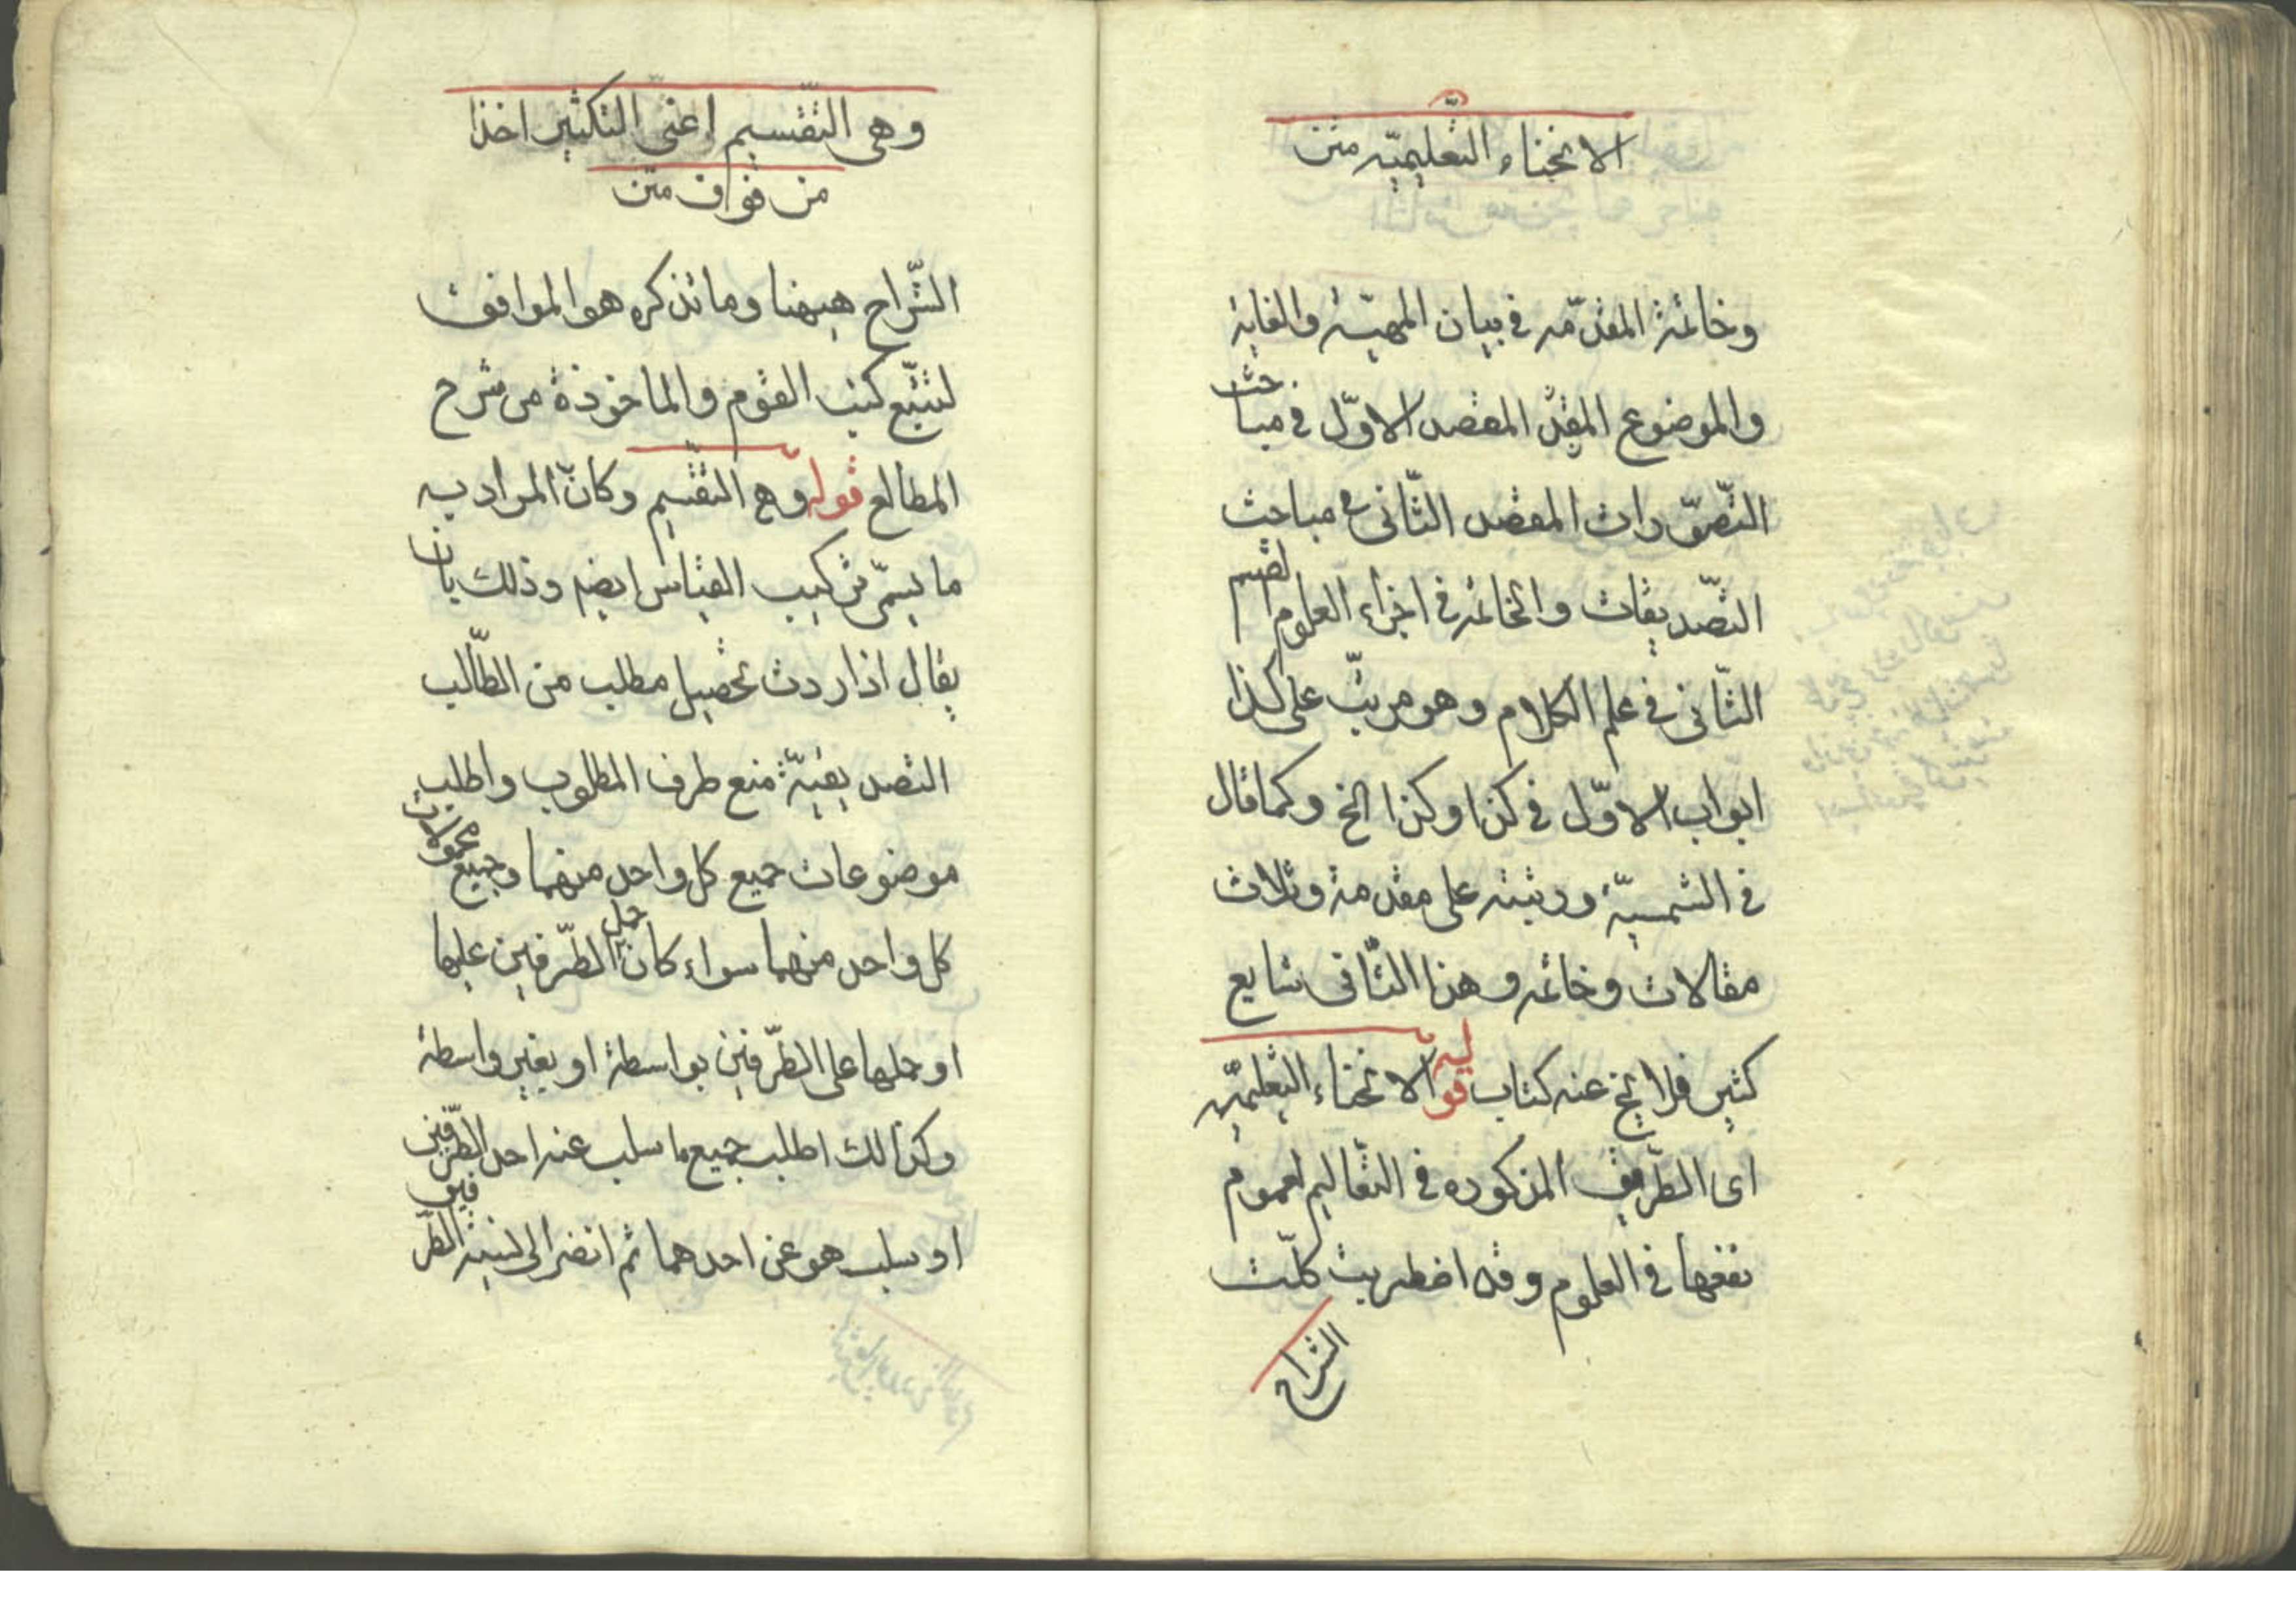 الانحناء التعليميّه متن
وخاتمة المقدّمه في بيان المهيّة والغاية
والموضوع المقد المقصد الاوّل في مباحث
التّصوّرات المقصد الثّاني في مباحث
التّصديقات والخاتمه في اجزاء العلوم القسم
الثّاني في علم الكلاوم وهو مرتّب على كذا
ابواب الاوّل في كذا وكذا الخ وكما قال
في الشمسيّة ورتبته على مقدمة وثلاث
مقالات وخاتمه وهذا الثّاني شايع
كثير فلا يخ عنه كتاب قوله الانحناء التعليميّه
اى الطّريق المذكوره في التّعاليم لعموم
نفعها في العلوم وقد اضطربت كلمت
الشراح
وهى التّقسيم اعنى التكثير اخذا
من فوق متن
الشّراح هيهنا وما نذكره هو الموافق
لتتبّع كتب القوم والماخوذة من شرح
المطالع قوله وهى التقسيم وكانّ المراد به
ما يسمّى تركيب القياس ايضه وذلك بان
يقال اذا ردت تحصيل مطلب من الطّالب
التصديقيّة منع طرف المطلوب واطلب
موضوعات جميع كل واحد منهما وجميع محمولات
كل واحد منهما سواء كان حمل الطّرفين عليها
او حملها على الطّرفين بواسطة او بغير واسطة
وكذالك اطلب جميع ما سلب عنه احد الطّرفين
او سلب هو عن احدهما ثم انضر الى نسبة الطّرفين